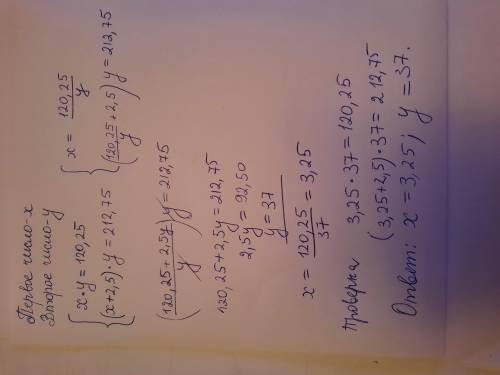 Первое число - x
Второе число - y
{ x·y = 120,25
{ (x+2,5)·y = 212,75
{ x = 120,25/y
{ (120,25/y + 2,5) y = 212,75
((120,25 + 2,5y)/y) y = 212,75
120,25 + 2,5y = 212,75
2,5y = 92,50
y = 37
x = 120,25/37 = 3,25
Проверка 3,25·37 = 120,25
(3,25+2,5)·37 = 212,75
Ответ: x = 3,25; y = 37.